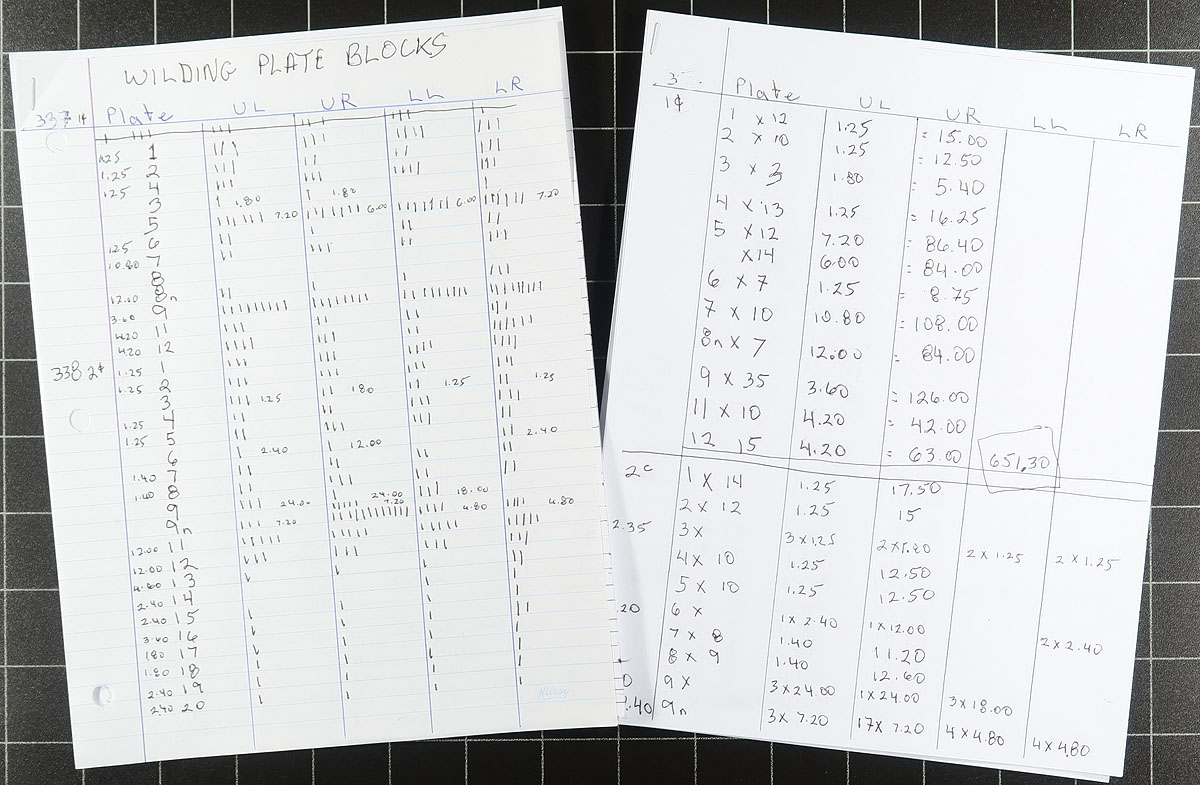 WILDING PLATE BLOCKS
337 1¢ Plate UL UR LL LR
1.25 1
1.25 2
1.25 4
3 1.80 1.80
5 7.20 6.00 6.00 7.20
1.25 6
10.80 7
8
12.00 8n
3.60 9
4.20 11
4.20 12
338 2¢ 1.25 1
1.25 2
3 1.25 1.80 1.25 1.25
1.25 4
1.25 5
6 2.40 12.00 2.40
1.40 7
1.40 8
9 24.00 24.00 18.00
9n 7.20 7.20 4.80 4.80
12.00 11
12.00 12
4.80 13
2.40 14
2.40 15
3.60 16
1.80 17
1.80 18
2.40 19
2.40 20
Hilroy
3 Plate UL UR LL LR
1¢ 1 x 12 1.25 = 15.00
2 x 10 1.25 = 12.50
3 x 3 1.80 = 5.40
4 x 13 1.25 = 16.25
5 x 12 7.20 = 86.40
x 14 6.00 = 84.00
6 x 7 1.25 = 8.75
7 x 10 10.80 = 108.00
8n x 7 12.00 = 84.00
9 x 35 3.60 = 126.00
11 x 10 4.20 = 42.00
12 15 4.20 = 63.00 651.30
2c 1 x 14 1.25 17.50
2 x 12 1.25 15
2.35 3 x 3 x 1.25 2 x 1.80 2 x 1.25 2 x 1.25
4 x 10 1.25 12.50
5 x 10 1.25 12.50
.20 6 x 1 x 2.40 1 x 12.00 2 x 2.40
7 x 8 1.40 11.20
8 x 9 1.40 12.60
0 9 x 3 x 24.00 1 x 24.00 3 x 18.00
.40 9n 3 x 7.20 17 x 7.20 4 x 4.80 4 x 4.80